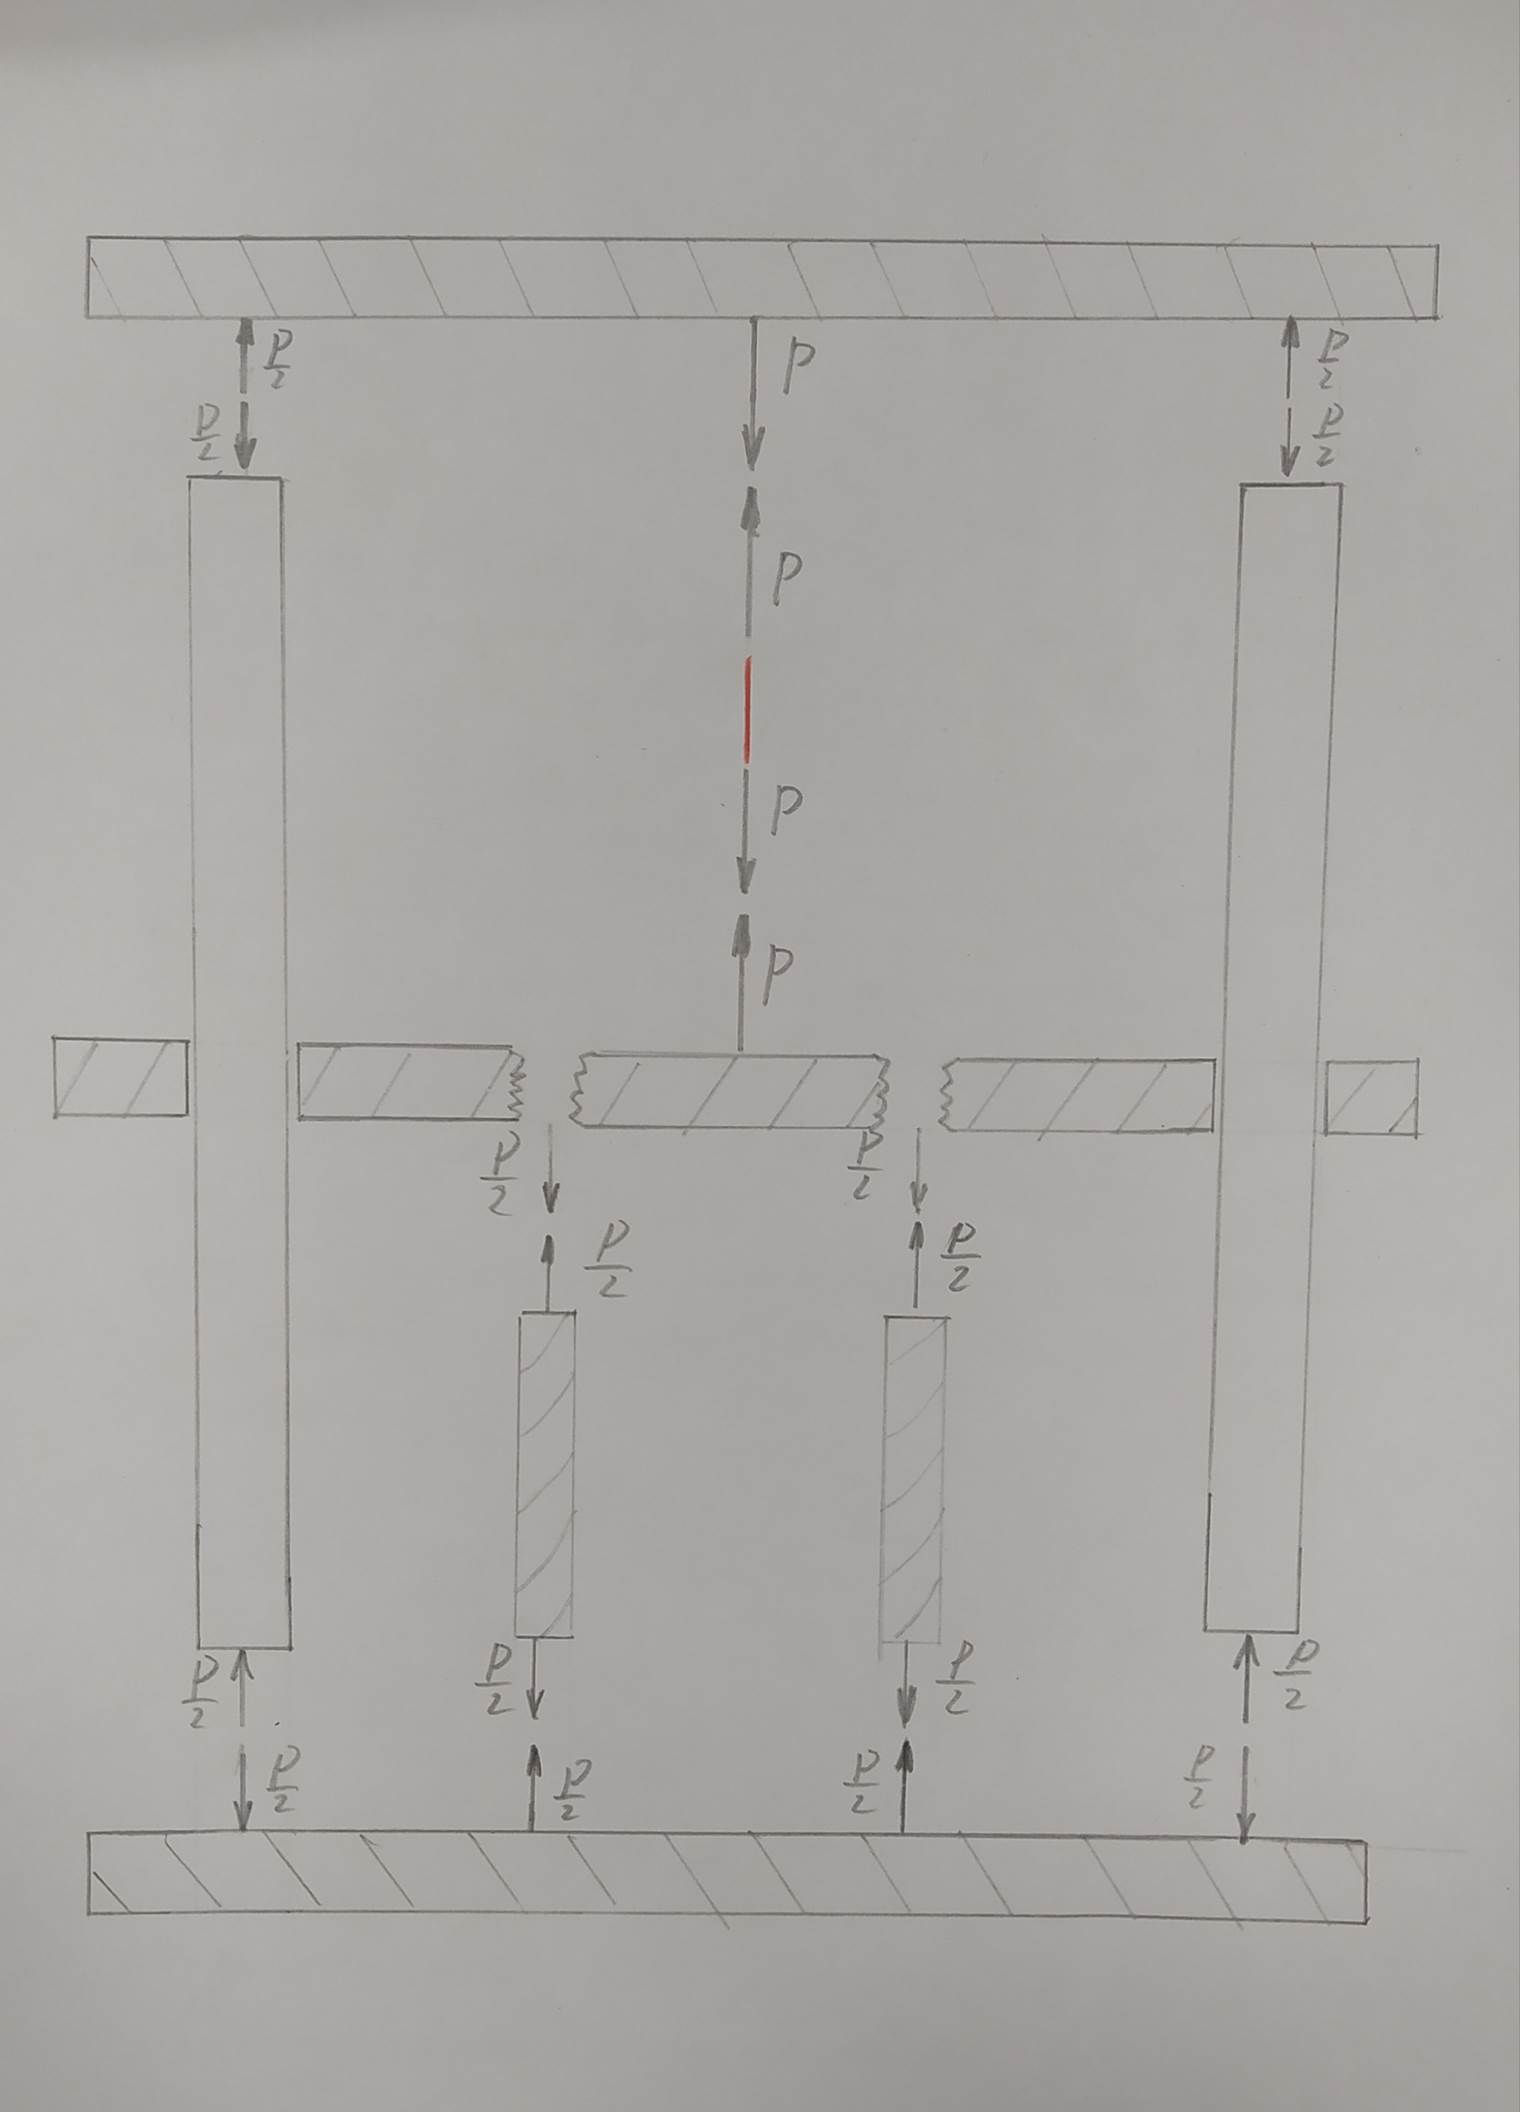 P/2 P P/2
P/2 P/2
P
P
P
P/2 P/2
P/2 P/2
P/2 P/2 P/2 P/2
P/2 P/2 P/2 P/2